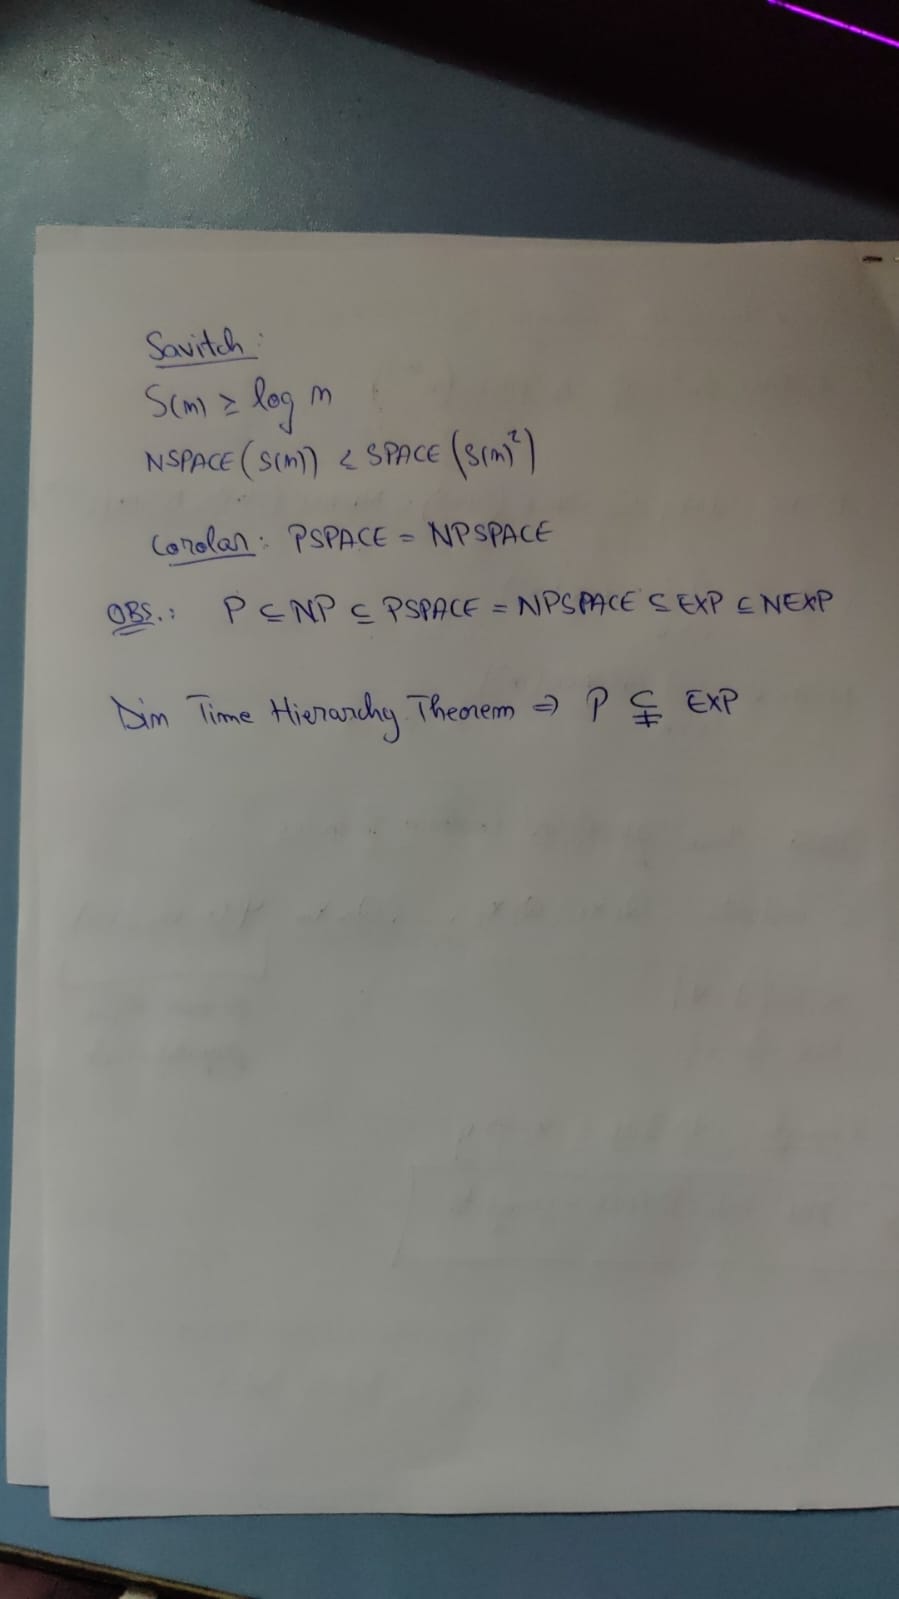 Savitch:
S(n) ≥ log n
NSPACE(S(n)) ⊆ SPACE(S(n)²)
Corolar: PSPACE = NPSPACE
OBS.: P ⊆ NP ⊆ PSPACE = NPSPACE ⊆ EXP ⊆ NEXP
Din Time Hierarchy Theorem ⇒ P ⊊ EXP